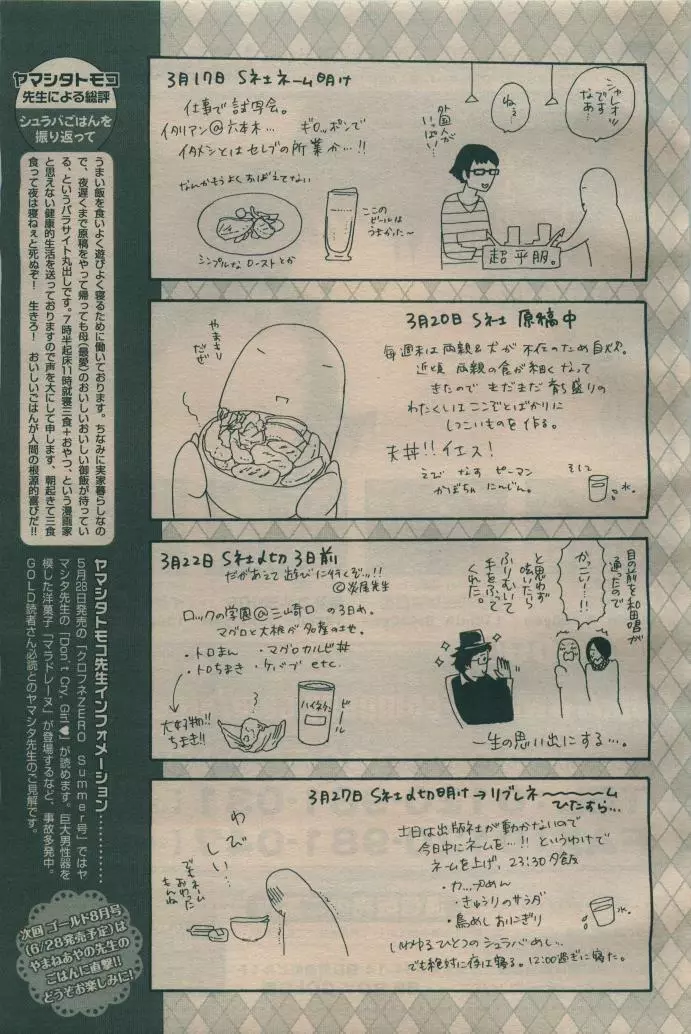 3月17日 S社ネーム明け
仕事で試写会。
イタリアン@六本木… ギロッポンで
イタメシとはセレブの所業か…!!
なんかもうよくおぼえてない
シンプルなローストとか
ここの
ビールは
うまかった〜
外国人が
いっぱい…
ねぇ…
シャレオツ
ですなあ
超平服。
3月20日 S社 原稿中
毎週末は両親&犬が不在のため自炊。
近頃 両親の食が細くなって
きたので まだまだ育ち盛りの
わたくしはここぞとばかりに
しつこいものを作る。
天丼!!イエス!
えび なす ピーマン
かぼちゃ にんじん。
そして
水。
やまもり
だぜ
3月22日 S社〆切3日前
だがあえて遊びに行くぞ…!!
ロックの学園@三崎口の3日め。
マグロと大根が名産の土地。
・トロまん ・マグロカルビ丼
・トロちまき ・ケバブ etc.
大好物!!
ちまき!!
ハイネケン
ビール
目の前を和田唱が
通ったので
かっこいー…!!
と思わず
呟いたら
ふりむいて
手をふって
くれた。
一生の思い出にする…。
3月27日 S社〆切明け→リブレネ〜〜〜ム
ひたすら…
土日は出版社が動かないので
今日中にネームを…!! というわけで
ネームを上げ、23:30夕飯
・カップめん
・きゅうりのサラダ
・鳥めしおにぎり
水。
いわゆるひとつのシュラバめし…
でも絶対に夜は寝る。12:00過ぎに寝た。
わびしい…
でもネーム
おわった
もんね
ヤマシタトモコ
先生による総評
シュラバごはんを
振り返って
うまい飯を食いよく遊びよく寝るために働いております。ちなみに実家暮らしなの
で、夜遅くまで原稿をやって帰っても母(最愛)のおいしいおいしい御飯が待ってい
る、というパラサイト丸出しです。7時半起床11時就寝三食+おやつ、という漫画家
と思えない健康的生活を送っておりますので声を大にして申します、朝起きて三食
食って夜は寝ねぇと死ぬぞ! 生きろ! おいしいごはんが人間の根源的喜びだ!!
ヤマシタトモコ先生インフォメーション…………
5月28日発売の「クロフネZERO Summer号」ではヤ
マシタ先生の「Don't Cry, Girl♥」が読めます。巨大男性器を
模した洋菓子「マラドレーヌ」が登場するなど、事故多発中。
GOLD読者さん必読とのヤマシタ先生のご見解です。
次回 ゴールド8月号
(6/28発売予定)は
やまねあやの先生の
ごはんに直撃!!
どうぞお楽しみに!